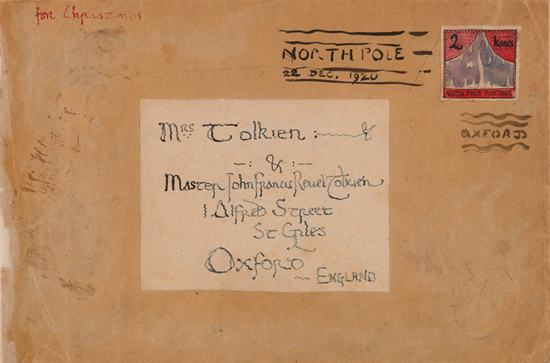 for Christmas
NORTH POLE
22 DEC. 1920
2 kisses
NORTH POLE POSTAGE
OXFORD
Mrs Tolkien :
- : -
&
Master John Francis Reuel Tolkien
1 Alfred Street
St Giles
Oxford
~ ENGLAND